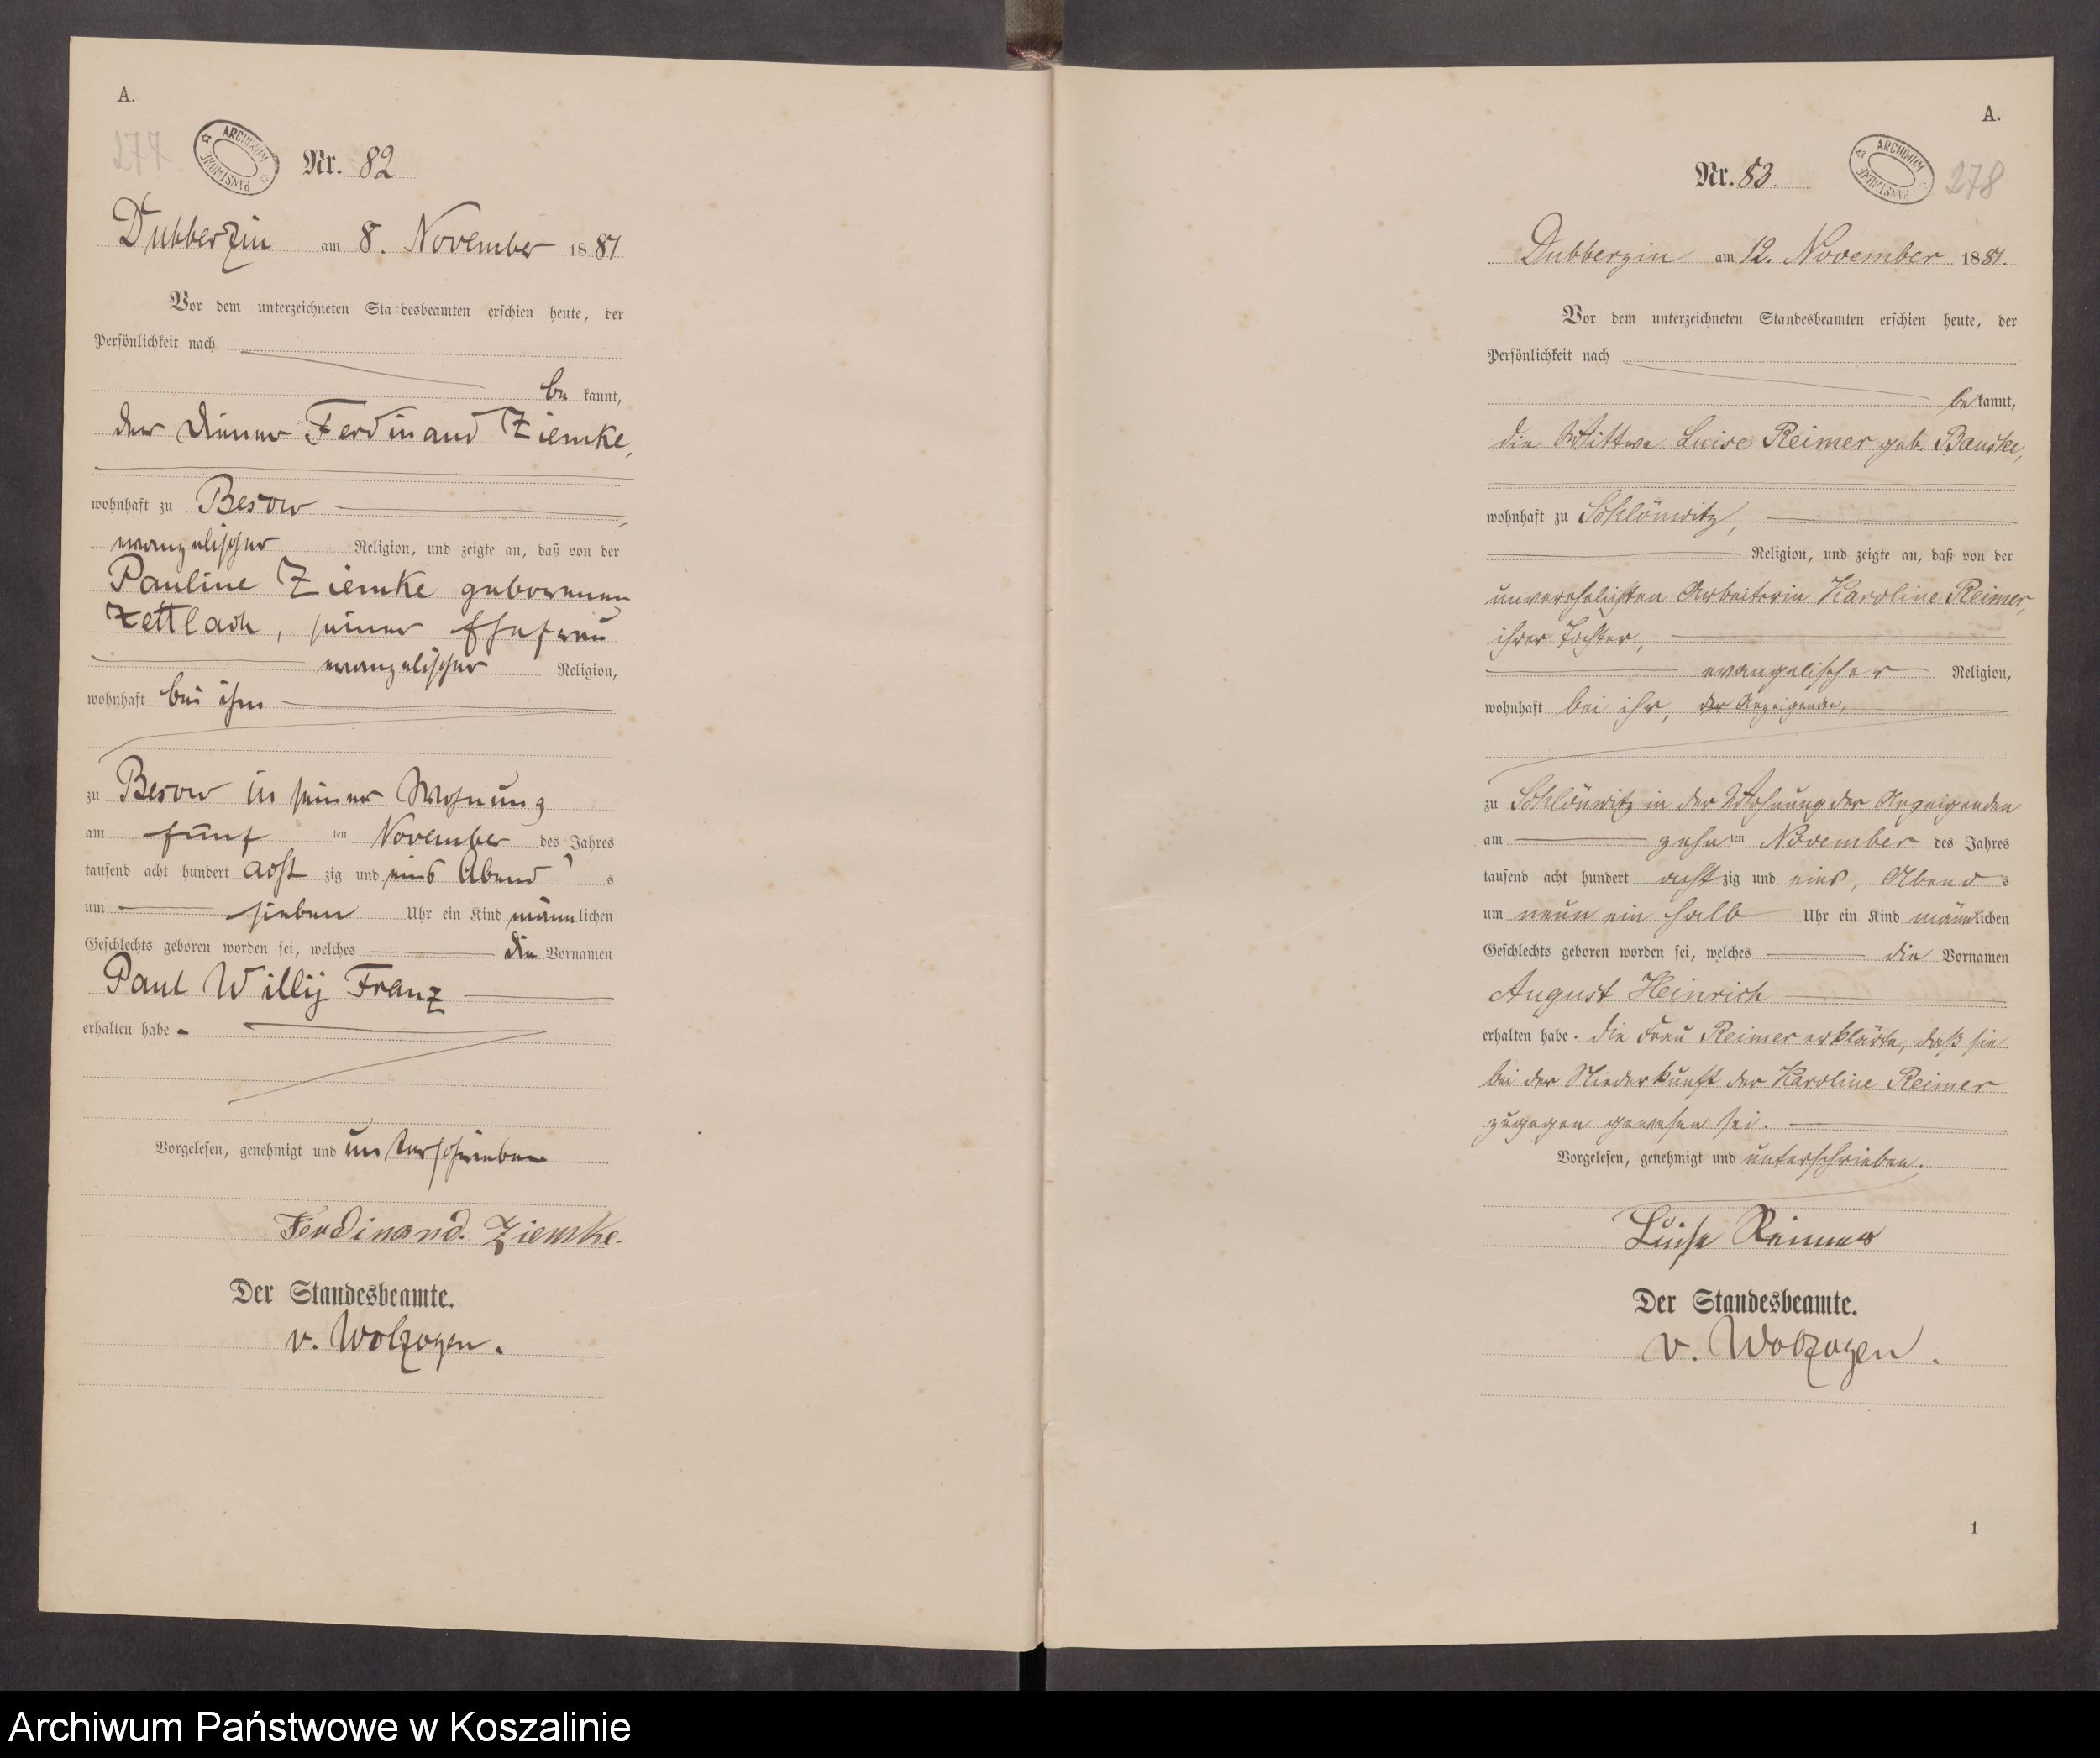 A.
277
ARCHIWUM PAŃSTWOWE
Nr. 82
Dubberzin am 8. November 1881
Vor dem unterzeichneten Standesbeamten erschien heute, der
Persönlichkeit nach
be kannt,
der Diener Ferdinand Ziemke,
wohnhaft zu Besow
evangelischer Religion, und zeigte an, daß von der
Pauline Ziemke geborenen
Zettlach, seiner Ehefrau
evangelischer Religion,
wohnhaft bei ihm
zu Besow in seiner Wohnung
am fünf ten November des Jahres
tausend acht hundert acht zig und eins Abend s
um sieben Uhr ein Kind männlichen
Geschlechts geboren worden sei, welches die Vornamen
Paul Willy Franz
erhalten habe.
Vorgelesen, genehmigt und unterschrieben
Ferdinand. Ziemke.
Der Standesbeamte.
v. Wolzogen.
A.
Nr. 83.
ARCHIWUM PAŃSTWOWE
278
Dubberzin am 12. November 1881.
Vor dem unterzeichneten Standesbeamten erschien heute, der
Persönlichkeit nach
be kannt,
die Wittwe Luise Reimer geb. Banske,
wohnhaft zu Schlönwitz,
Religion, und zeigte an, daß von der
unverehelichten Arbeiterin Karoline Reimer,
ihrer Tochter,
evangelischer Religion,
wohnhaft bei ihr, der Anzeigenden,
zu Schlönwitz in der Wohnung der Anzeigenden
am zehn ten November des Jahres
tausend acht hundert acht zig und eins, Abend s
um neun ein halb Uhr ein Kind männlichen
Geschlechts geboren worden sei, welches die Vornamen
August Heinrich
erhalten habe. Die Frau Reimer erklärte, daß sie
bei der Niederkunft der Karoline Reimer
zugegen gewesen sei.
Vorgelesen, genehmigt und unterschrieben.
Luise Reimer
Der Standesbeamte.
v. Wolzogen.
1
Archiwum Państwowe w Koszalinie